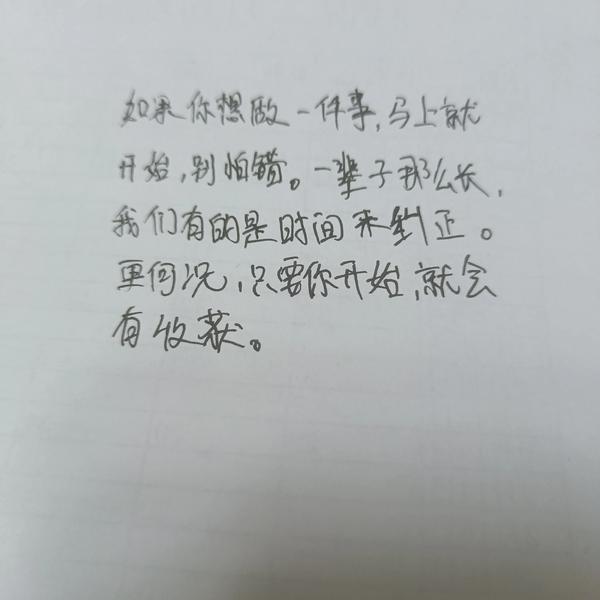 如果你想做一件事,马上就
开始,别怕错。一辈子那么长,
我们有的是时间来纠正。
更何况,只要你开始,就会
有收获。